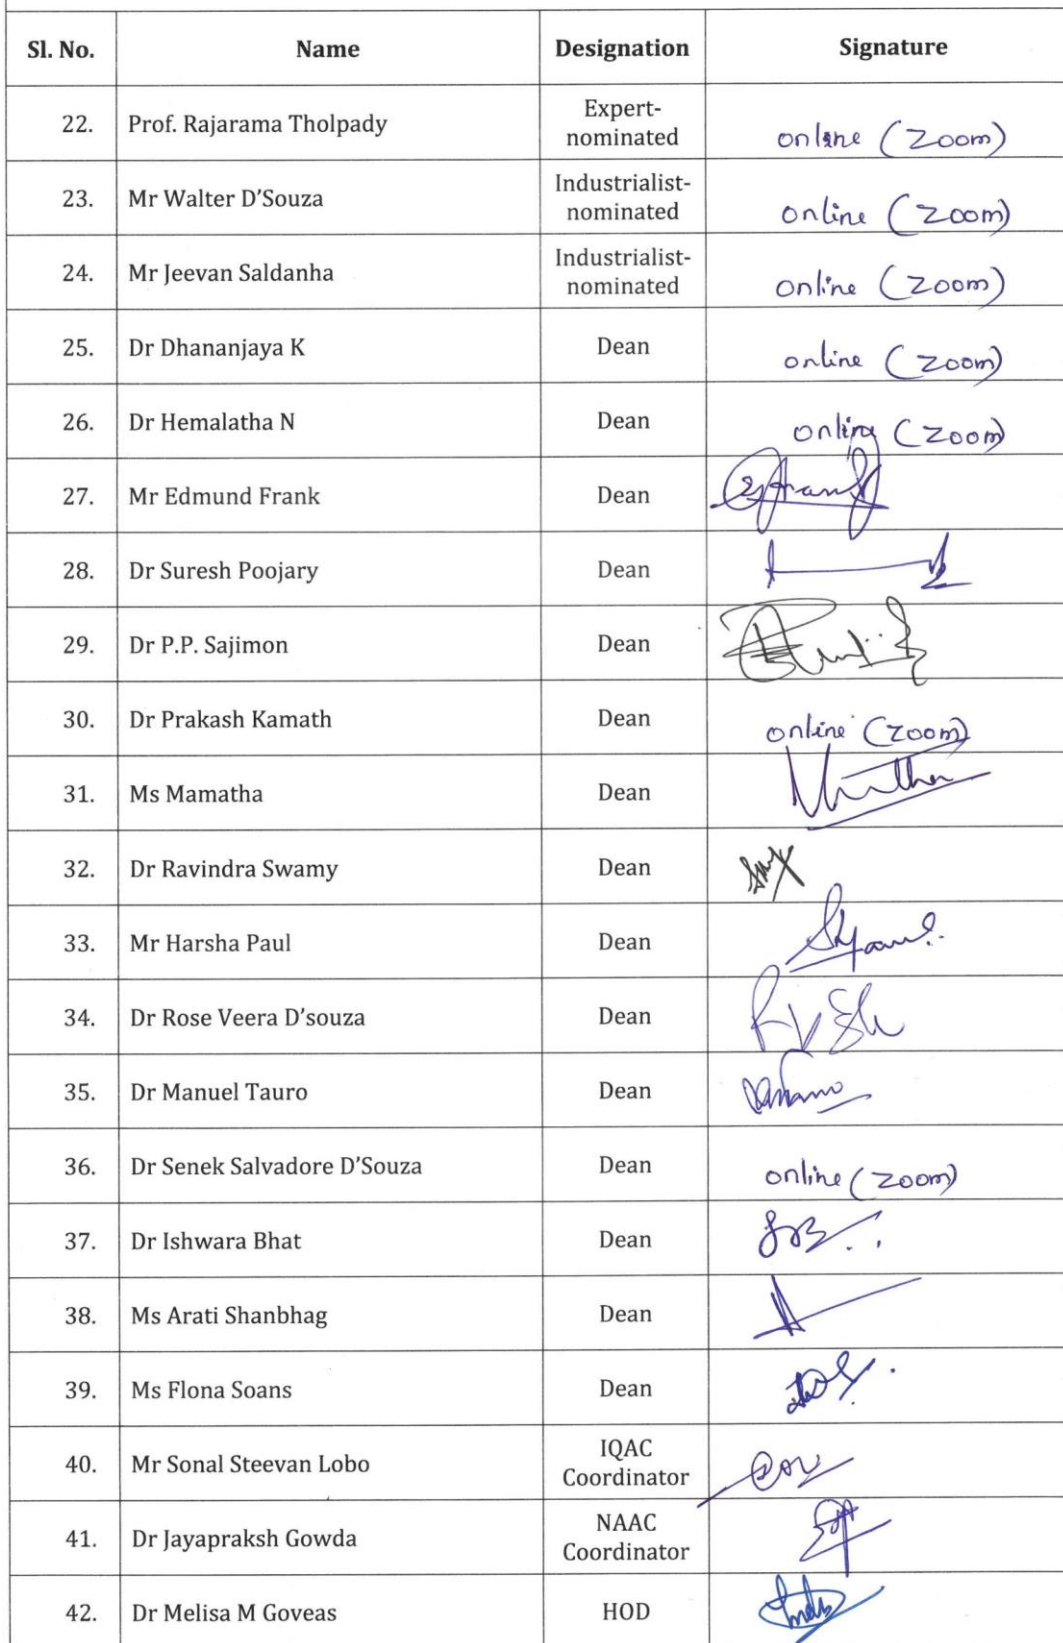 Sl. No. Name Designation Signature
22. Prof. Rajarama Tholpady Expert-nominated online (Zoom)
23. Mr Walter D'Souza Industrialist-nominated online (Zoom)
24. Mr Jeevan Saldanha Industrialist-nominated online (Zoom)
25. Dr Dhananjaya K Dean online (Zoom)
26. Dr Hemalatha N Dean online (Zoom)
27. Mr Edmund Frank Dean
28. Dr Suresh Poojary Dean
29. Dr P.P. Sajimon Dean
30. Dr Prakash Kamath Dean online (Zoom)
31. Ms Mamatha Dean
32. Dr Ravindra Swamy Dean
33. Mr Harsha Paul Dean
34. Dr Rose Veera D'souza Dean
35. Dr Manuel Tauro Dean
36. Dr Senek Salvadore D'Souza Dean online (Zoom)
37. Dr Ishwara Bhat Dean
38. Ms Arati Shanbhag Dean
39. Ms Flona Soans Dean
40. Mr Sonal Steevan Lobo IQAC Coordinator
41. Dr Jayapraksh Gowda NAAC Coordinator
42. Dr Melisa M Goveas HOD